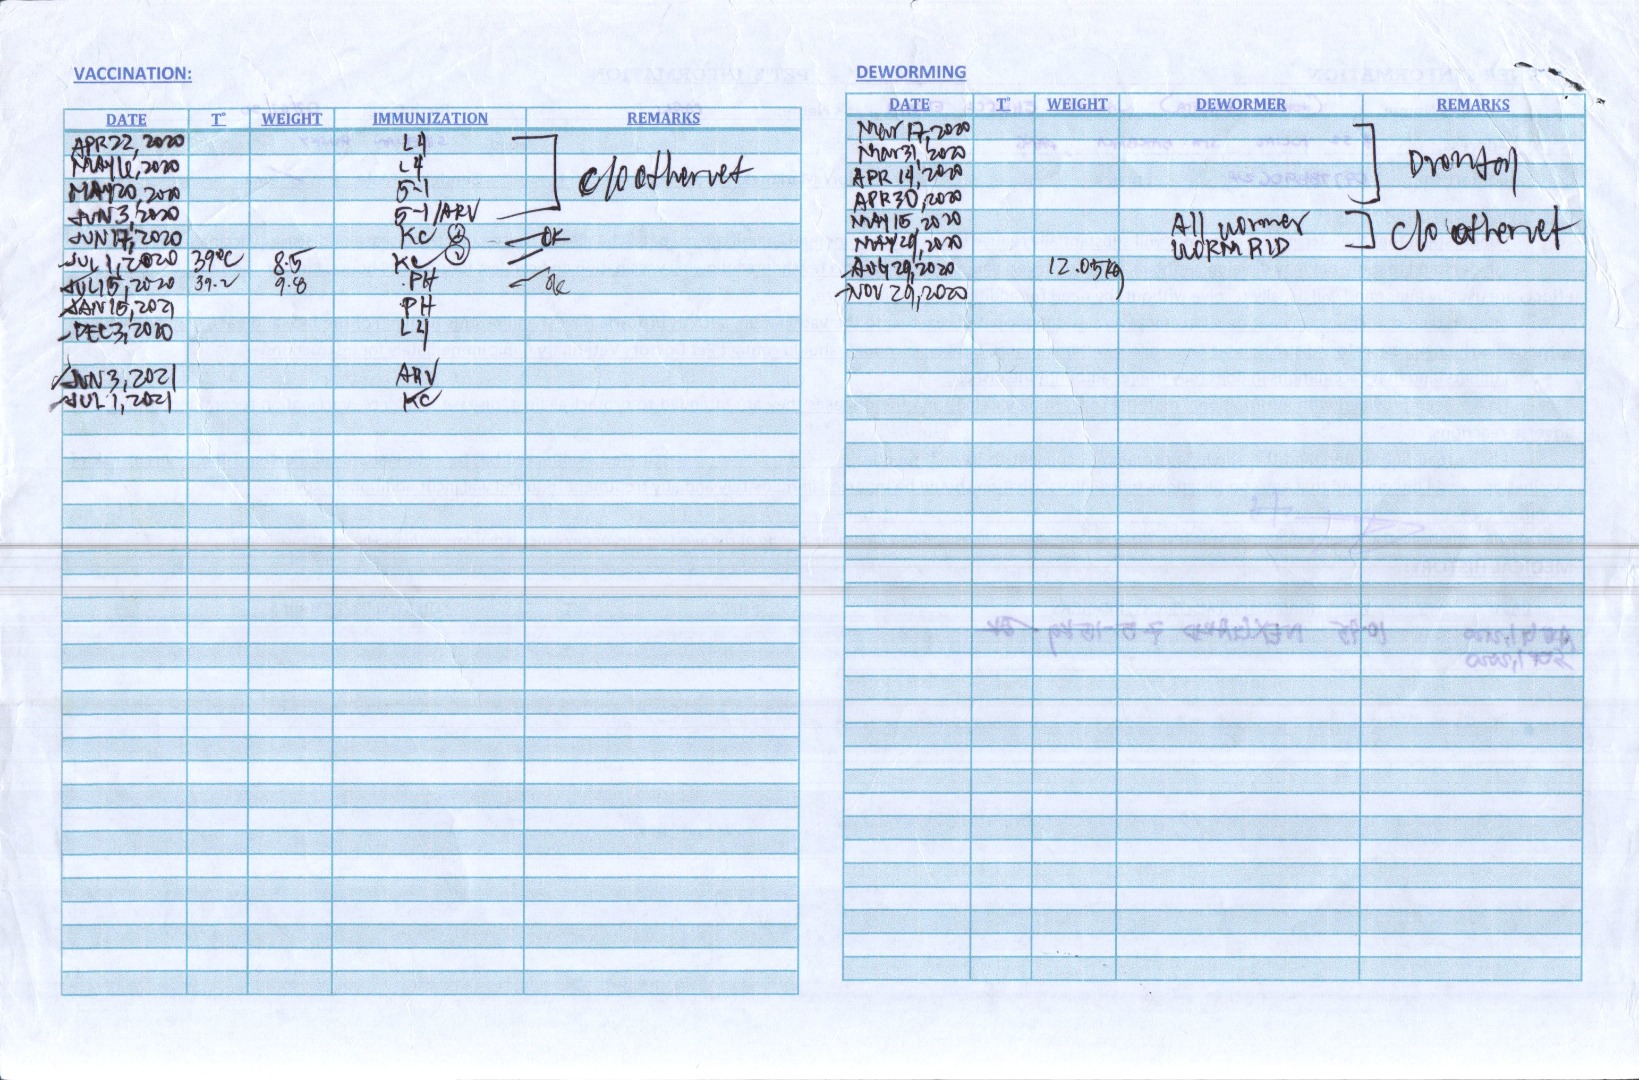 VACCINATION:
DATE T° WEIGHT IMMUNIZATION REMARKS
APR 22, 2020 L4
MAY 6, 2020 L4
MAY 20, 2020 5-1
JUN 3, 2020 5-1/ARV
JUN 17, 2020 KC 1 OK
JUL 1, 2020 39°C 8.5 KC 2
JUL 15, 2020 39.2 9.8 PH
JAN 15, 2021 PH
DEC 3, 2020 L4
JUN 3, 2021 ARV
JUL 1, 2021 KC
DEWORMING
DATE T° WEIGHT DEWORMER REMARKS
Mar 17, 2020
Mar 31, 2020
APR 14, 2020
APR 30, 2020
MAY 15, 2020 All wormer
MAY 29, 2020 WORM RID
AUG 29, 2020 12.05kg
NOV 29, 2020